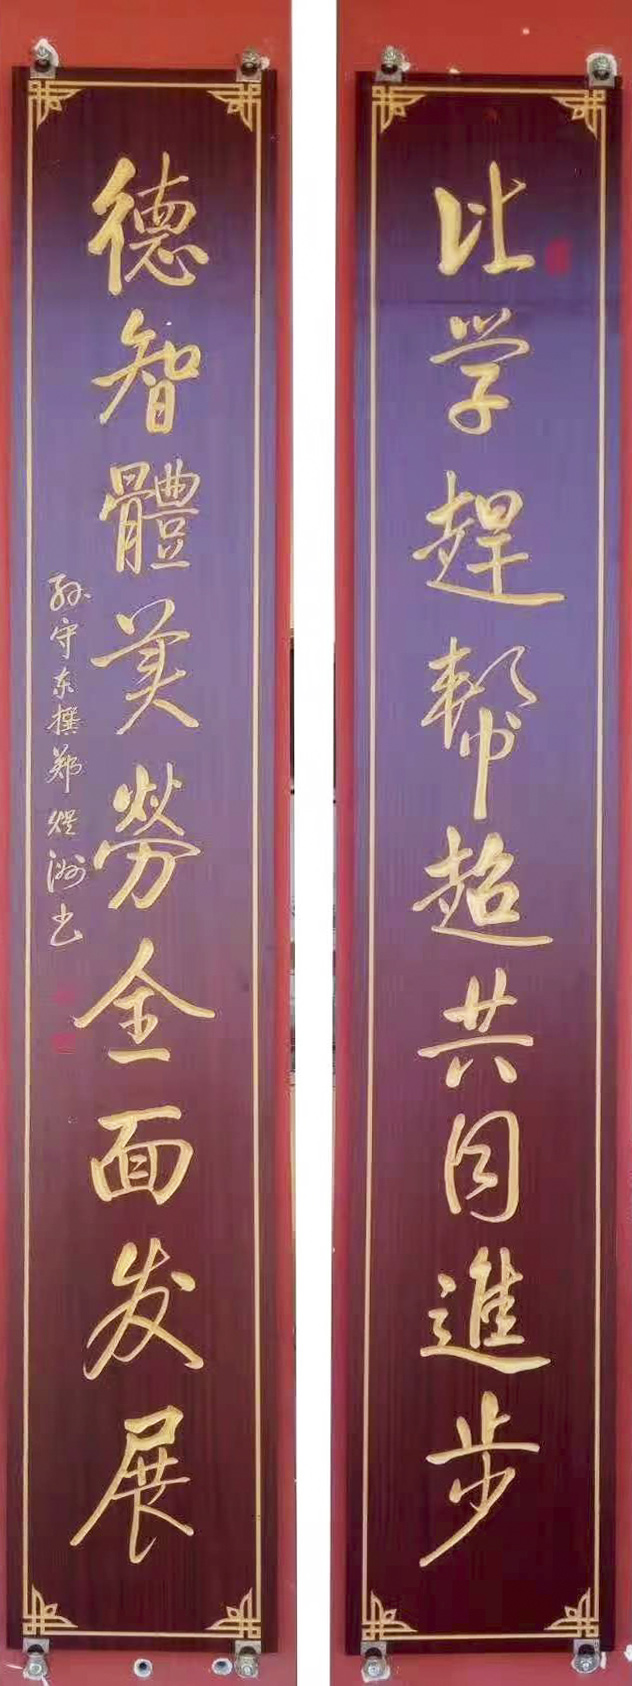 比学趕帮超共同進步
德智體美勞全面发展
孙守东撰郑煜洲书